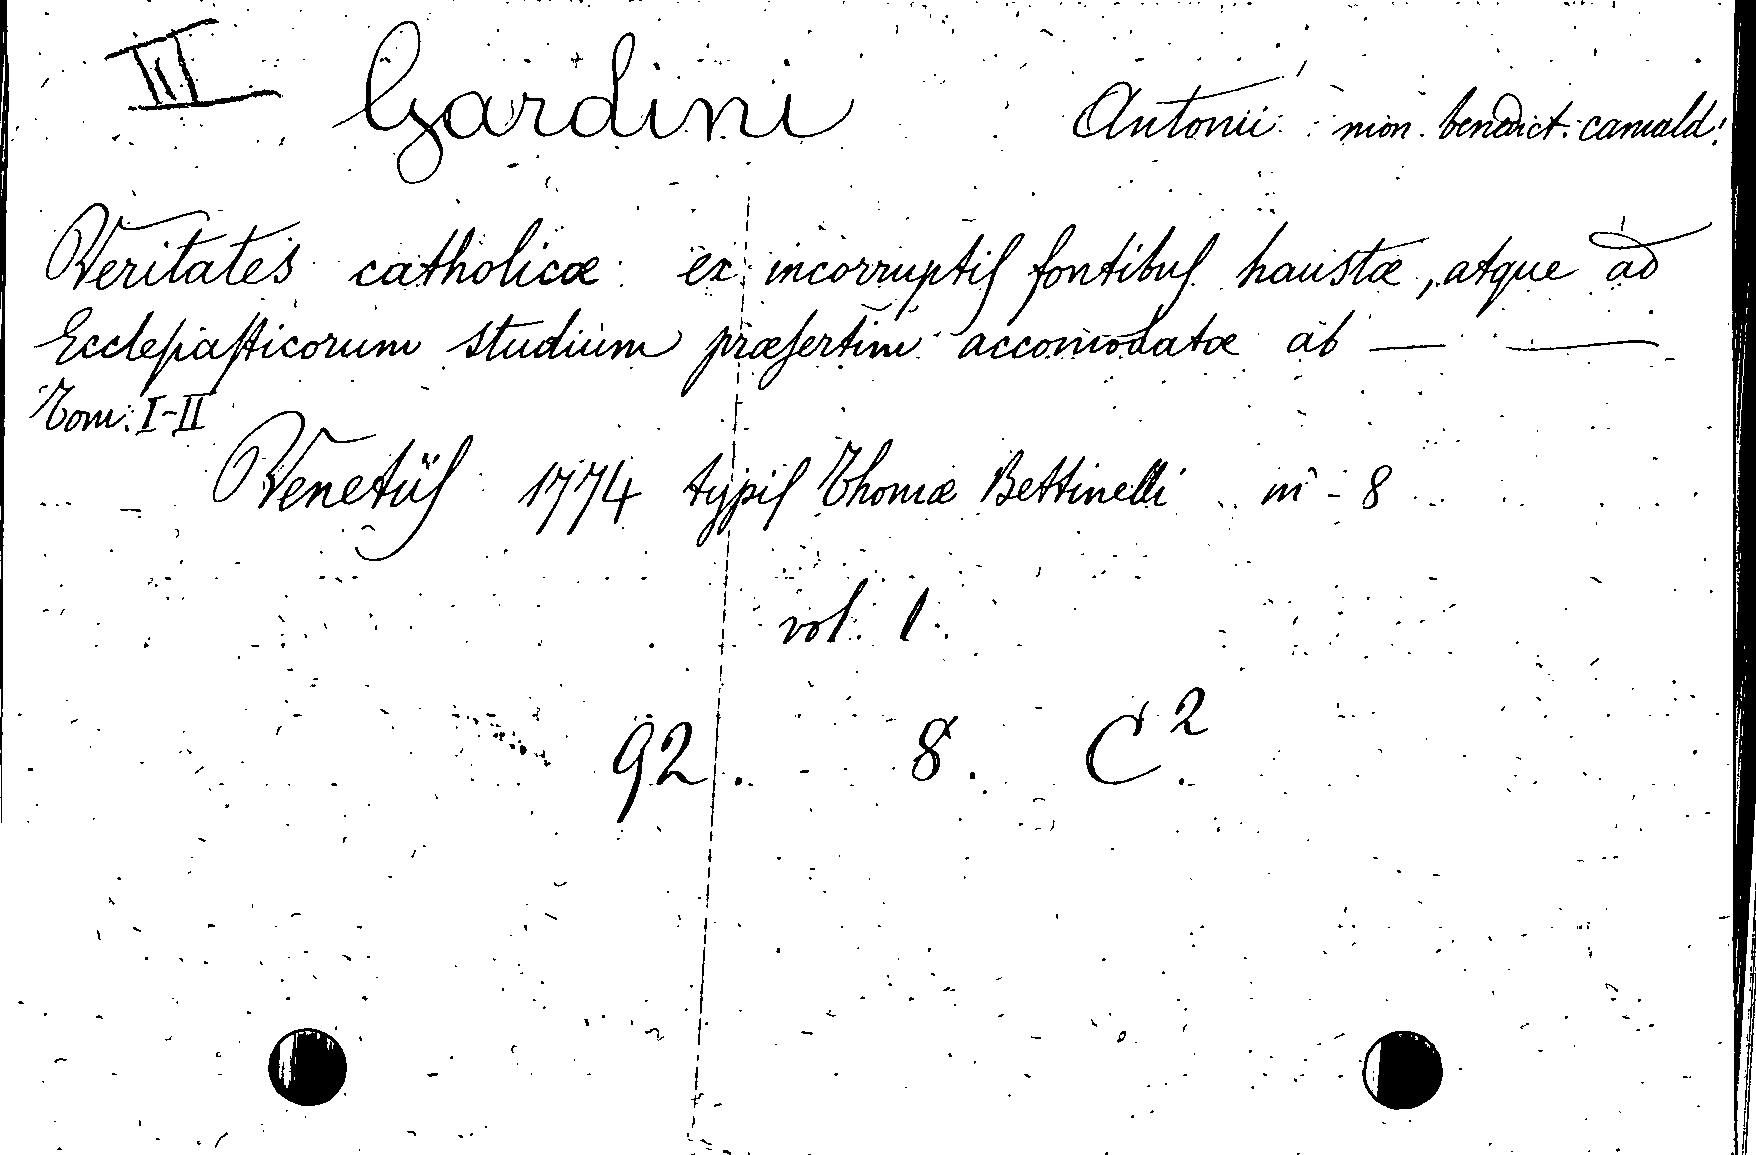 III Gardini Antonii mon. benedict. camald.
Veritates catholicæ ex incorruptis fontibus haustæ, atque ad
Ecclesiasticorum studium præsertim accomodatæ ab — —
Tom. I-II
Venetiis 1774 typis Thomæ Bettinelli in-8
vol. 1.
92. 8. C².